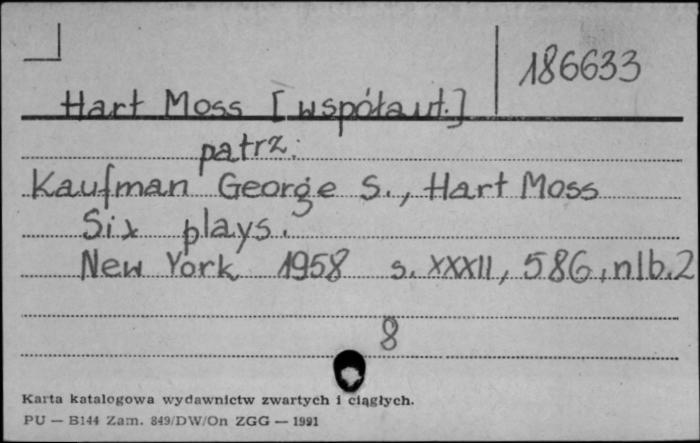 186633
Hart Moss [współaut.]
patrz:
Kaufman George S., Hart Moss
Six plays.
New York 1958 s. XXXII, 586, nlb. 2
8
Karta katalogowa wydawnictw zwartych i ciągłych.
PU — B144 Zam. 849/DW/On ZGG — 1991